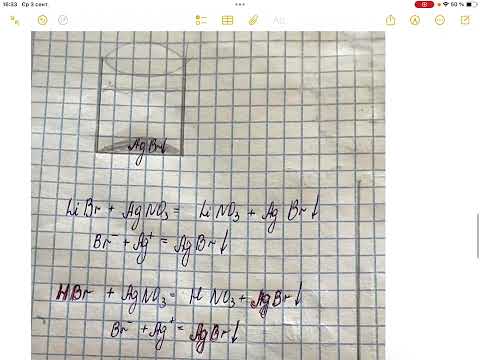 16:33 Ср 3 сент.
50 %
Aa
AgBr↓
LiBr + AgNO₃ = LiNO₃ + AgBr↓
Br⁻ + Ag⁺ = AgBr↓
HBr + AgNO₃ = HNO₃ + AgBr↓
Br⁻ + Ag⁺ = AgBr↓